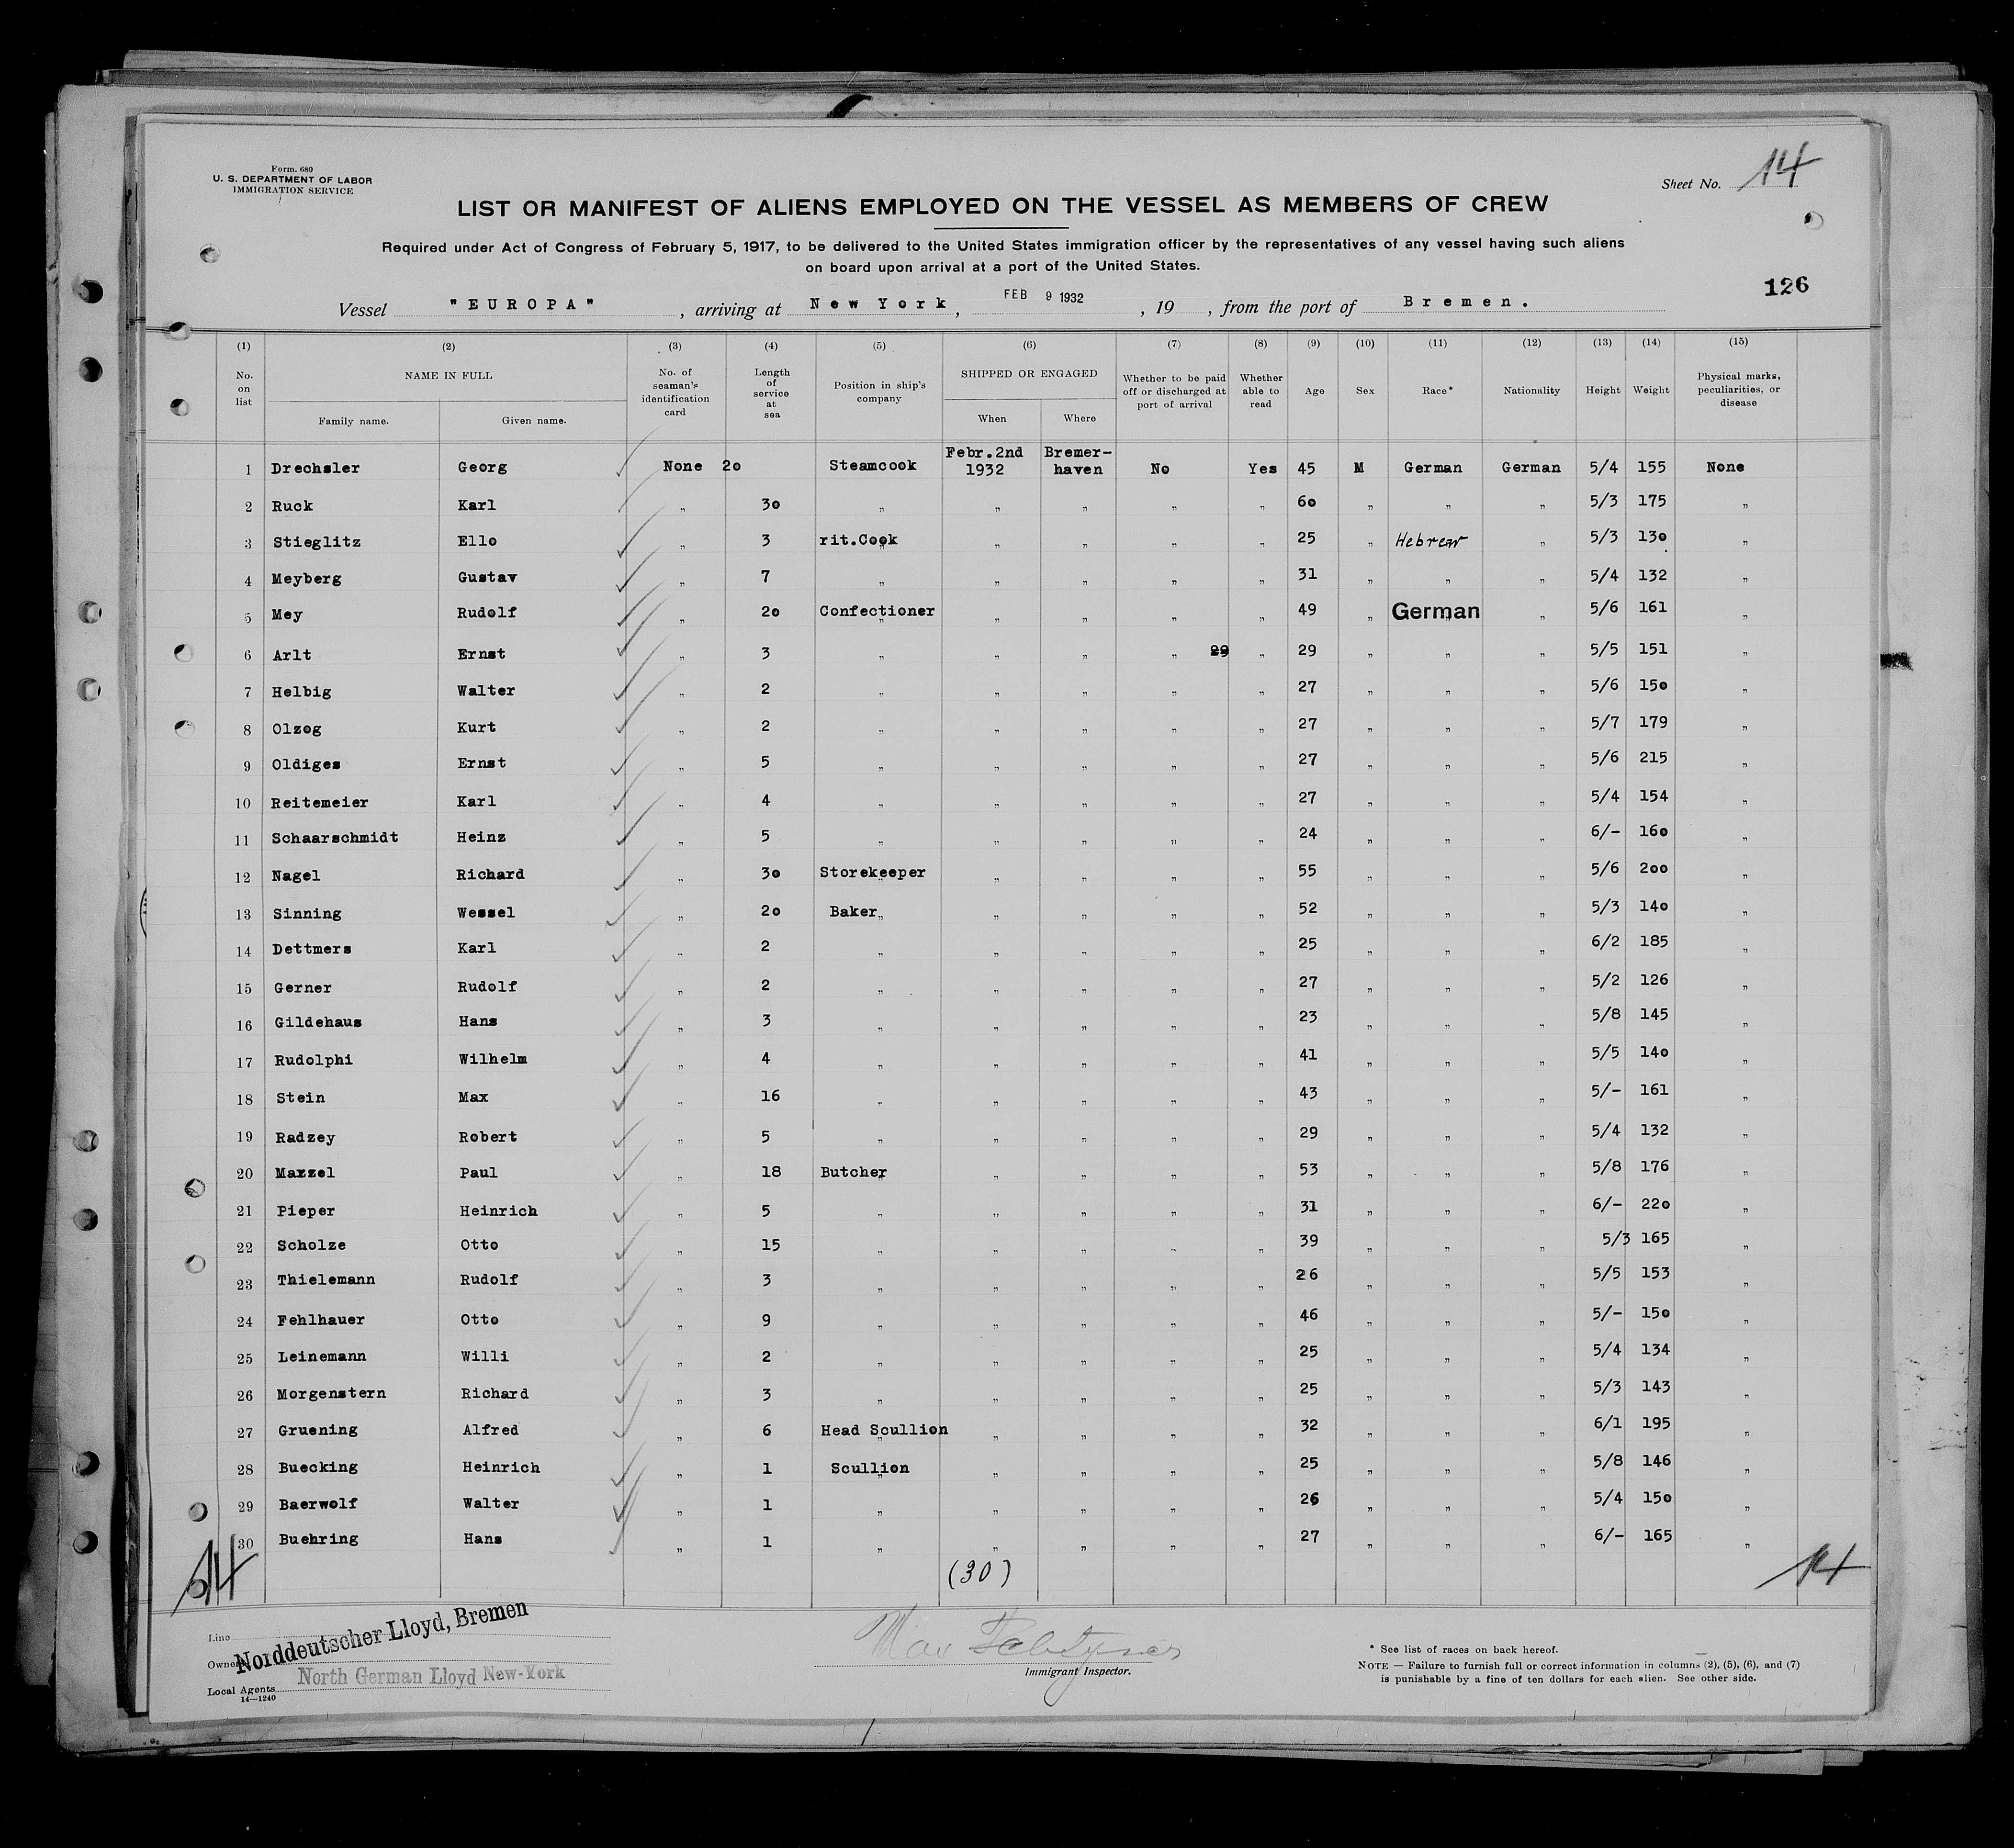 Form. 680
U. S. DEPARTMENT OF LABOR
IMMIGRATION SERVICE
Sheet No. 14
LIST OR MANIFEST OF ALIENS EMPLOYED ON THE VESSEL AS MEMBERS OF CREW
Required under Act of Congress of February 5, 1917, to be delivered to the United States immigration officer by the representatives of any vessel having such aliens
on board upon arrival at a port of the United States.
126
Vessel "EUROPA", arriving at New York, FEB 9 1932, 19 , from the port of Bremen.
(1) (2) (3) (4) (5) (6) (7) (8) (9) (10) (11) (12) (13) (14) (15)
No. on list NAME IN FULL Family name. Given name. No. of seaman's identification card Length of service at sea Position in ship's company SHIPPED OR ENGAGED When Where Whether to be paid off or discharged at port of arrival Whether able to read Age Sex Race* Nationality Height Weight Physical marks, peculiarities, or disease
1 Drechsler Georg None 20 Steamcook Febr.2nd 1932 Bremer-haven No Yes 45 M German German 5/4 155 None
2 Ruck Karl " 30 " " " " " 60 " " " 5/3 175 "
3 Stieglitz Ello " 3 rit.Cook " " " " 25 " Hebrew " 5/3 130 "
4 Meyberg Gustav " 7 " " " " " 31 " " " 5/4 132 "
5 Mey Rudolf " 20 Confectioner " " " " 49 " German " 5/6 161 "
6 Arlt Ernst " 3 " " " " 29 " 29 " " " 5/5 151 "
7 Helbig Walter " 2 " " " " " 27 " " " 5/6 150 "
8 Olzog Kurt " 2 " " " " " 27 " " " 5/7 179 "
9 Oldiges Ernst " 5 " " " " " 27 " " " 5/6 215 "
10 Reitemeier Karl " 4 " " " " " 27 " " " 5/4 154 "
11 Schaarschmidt Heinz " 5 " " " " " 24 " " " 6/- 160 "
12 Nagel Richard " 30 Storekeeper " " " " 55 " " " 5/6 200 "
13 Sinning Wessel " 20 Baker " " " " 52 " " " 5/3 140 "
14 Dettmers Karl " 2 " " " " " 25 " " " 6/2 185 "
15 Gerner Rudolf " 2 " " " " " 27 " " " 5/2 126 "
16 Gildehaus Hans " 3 " " " " " 23 " " " 5/8 145 "
17 Rudolphi Wilhelm " 4 " " " " " 41 " " " 5/5 140 "
18 Stein Max " 16 " " " " " 43 " " " 5/- 161 "
19 Radzey Robert " 5 " " " " " 29 " " " 5/4 132 "
20 Mazzel Paul " 18 Butcher " " " " 53 " " " 5/8 176 "
21 Pieper Heinrich " 5 " " " " " 31 " " " 6/- 220 "
22 Scholze Otto " 15 " " " " " 39 " " " 5/3 165 "
23 Thielemann Rudolf " 3 " " " " " 26 " " " 5/5 153 "
24 Fehlhauer Otto " 9 " " " " " 46 " " " 5/- 150 "
25 Leinemann Willi " 2 " " " " " 25 " " " 5/4 134 "
26 Morgenstern Richard " 3 " " " " " 25 " " " 5/3 143 "
27 Gruening Alfred " 6 Head Scullion " " " " 32 " " " 6/1 195 "
28 Buecking Heinrich " 1 Scullion " " " " 25 " " " 5/8 146 "
29 Baerwolf Walter " 1 " " " " " 26 " " " 5/4 150 "
30 Buehring Hans " 1 " " " " " 27 " " " 6/- 165 "
14 (30) 14
Line
Owners Norddeutscher Lloyd, Bremen
Local Agents North German Lloyd New-York
14—1240
Max
Immigrant Inspector.
* See list of races on back hereof.
NOTE — Failure to furnish full or correct information in columns (2), (5), (6), and (7)
is punishable by a fine of ten dollars for each alien. See other side.